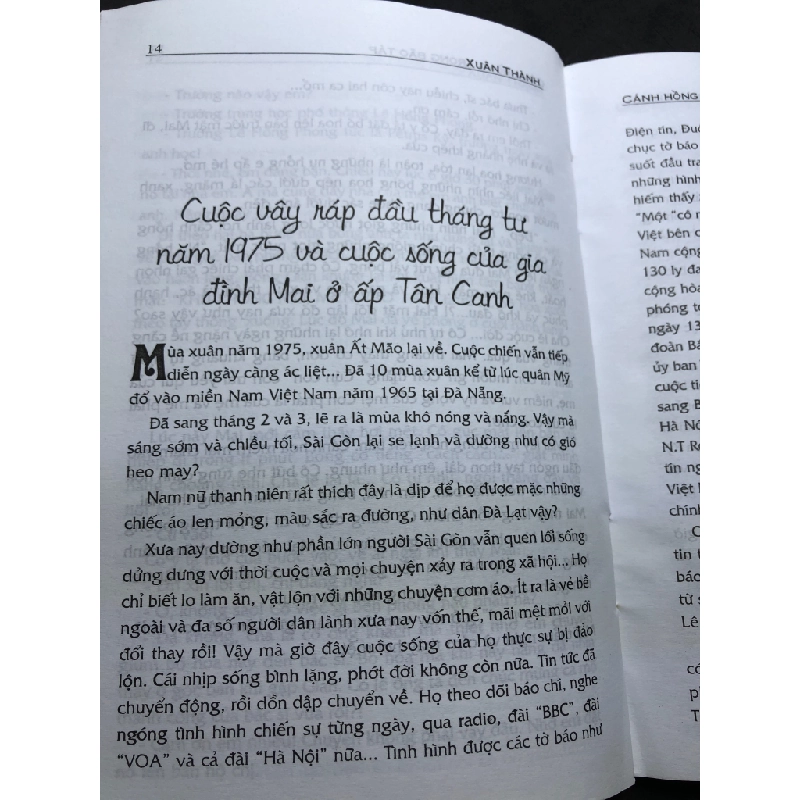 14
XUÂN THÀNH
Cuộc vây ráp đầu tháng tư
năm 1975 và cuộc sống của gia
đình Mai ở ấp Tân Canh
Mùa xuân năm 1975, xuân Ất Mão lại về. Cuộc chiến vẫn tiếp
diễn ngày càng ác liệt... Đã 10 mùa xuân kể từ lúc quân Mỹ
đổ vào miền Nam Việt Nam năm 1965 tại Đà Nẵng.
Đã sang tháng 2 và 3, lẽ ra là mùa khô nóng và nắng. Vậy mà
sáng sớm và chiều tối, Sài Gòn lại se lạnh và dường như có gió
heo may?
Nam nữ thanh niên rất thích đây là dịp để họ được mặc những
chiếc áo len mỏng, màu sắc ra đường, như dân Đà Lạt vậy?
Xưa nay dường như phần lớn người Sài Gòn vẫn quen lối sống
dửng dưng với thời cuộc và mọi chuyện xảy ra trong xã hội... Họ
chỉ biết lo làm ăn, vật lộn với những chuyện cơm áo. Ít ra là vẻ bề
ngoài và đa số người dân lành xưa nay vốn thế, mãi mệt mỏi với
đổi thay rồi! Vậy mà giờ đây cuộc sống của họ thực sự bị đảo
lộn. Cái nhịp sống bình lặng, phớt đời không còn nữa. Tin tức đã
chuyển động, rồi dồn dập chuyển về. Họ theo dõi báo chí, nghe
ngóng tình hình chiến sự từng ngày, qua radio, đài "BBC", đài
"VOA" và cả đài "Hà Nội" nữa... Tình hình được các tờ báo như
CÁNH HỒNG
Điện tin, Đu
chục tờ báo
suốt đầu tra
những hình
hiếm thấy
"Một "có n
Việt bên c
Nam cộng
130 ly đa
cộng hòa
phóng t
ngày 13
đoàn Bắ
ủy ban
cuộc ti
sang B
Hà Nộ
N.T R
tín ng
Việt
chính
tin t
báo
từ s
Lê
có
p
T